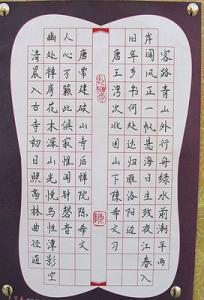 客路青山外行舟绿水前潮平两
岸阔风正一帆悬海日生残夜江春入
旧年乡书何处达归雁洛阳边
唐王湾次北固山下陈希文习
清晨入古寺初日照高林曲径通
幽处禅房花木深山光悦鸟性潭影空
人心万籁此俱寂惟闻钟磬音
唐常建破山寺后禅院陈希文